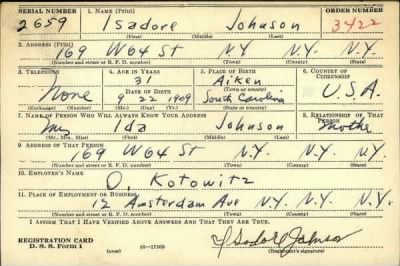 SERIAL NUMBER 1. NAME (Print) ORDER NUMBER
2659 Isadore Johnson 3422
(First) (Middle) (Last)
2. ADDRESS (Print)
169 W 64 St N.Y. N.Y. N.Y.
(Number and street or R. F. D. number) (Town) (County) (State)
3. TELEPHONE 4. AGE IN YEARS 5. PLACE OF BIRTH 6. COUNTRY OF CITIZENSHIP
31 Aiken
DATE OF BIRTH (Town or county)
None 9 22 1909 South Carolina U.S.A.
(Exchange) (Number) (Mo.) (Day) (Yr.) (State or country)
7. NAME OF PERSON WHO WILL ALWAYS KNOW YOUR ADDRESS 8. RELATIONSHIP OF THAT PERSON
Ida Johnson Mother
(Mr., Mrs., Miss) (First) (Middle) (Last)
9. ADDRESS OF THAT PERSON
169 W 64 St N.Y. N.Y. N.Y.
(Number and street or R. F. D. number) (Town) (County) (State)
10. EMPLOYER'S NAME
O. Kotowitz
11. PLACE OF EMPLOYMENT OR BUSINESS
12 Amsterdam Ave N.Y. N.Y. N.Y.
(Number and street or R. F. D. number) (Town) (County) (State)
I AFFIRM THAT I HAVE VERIFIED ABOVE ANSWERS AND THAT THEY ARE TRUE.
REGISTRATION CARD
D. S. S. Form 1 (over) 16—17105 Isadore Johnson